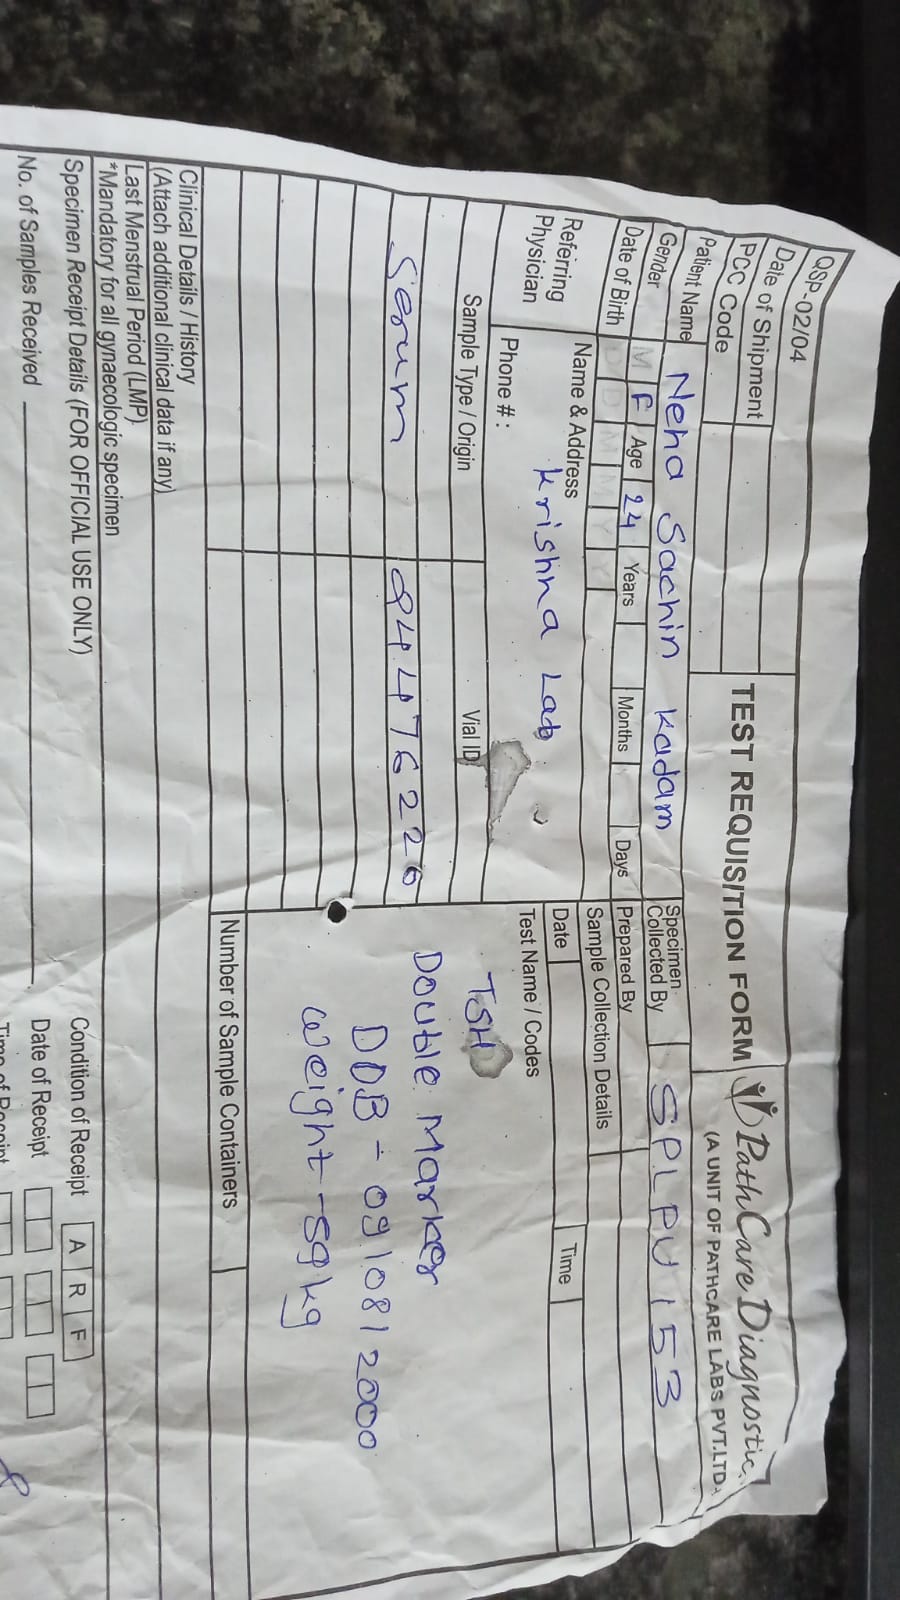 QSP-02/04
TEST REQUISITION FORM
PathCare Diagnostic
(A UNIT OF PATHCARE LABS PVT.LTD.
Date of Shipment
PCC Code
Patient Name Neha Sachin Kadam
Specimen Collected By SPLPU153
Gender M F Age 24 Years Months Days
Prepared By
Date of Birth D D M M Y Y
Sample Collection Details
Referring Physician
Name & Address
Krishna Lab
Date Time
Phone #:
Test Name / Codes
Sample Type / Origin Vial ID
TSH
Serum
Double Marker
DOB - 09/08/2000
weight - 59kg
Number of Sample Containers
Clinical Details / History
(Attach additional clinical data if any)
Last Menstrual Period (LMP)
*Mandatory for all gynaecologic specimen
Specimen Receipt Details (FOR OFFICIAL USE ONLY)
Condition of Receipt A R F
No. of Samples Received
Date of Receipt